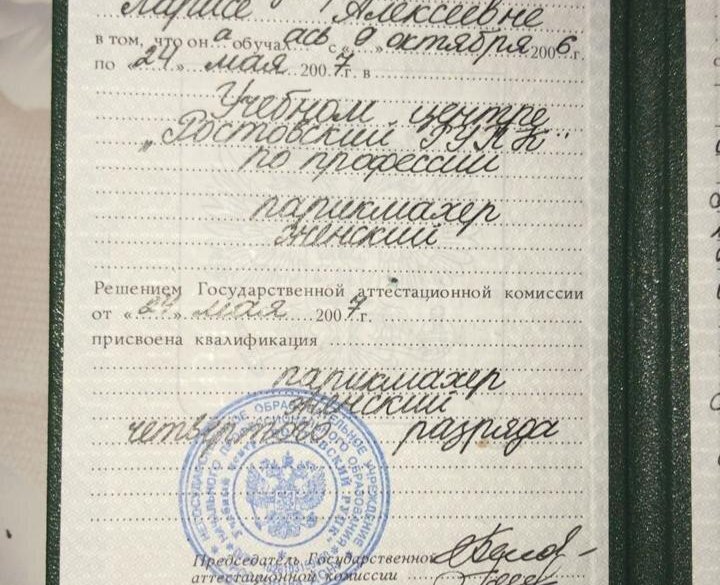 Ларисе Алексеевне
в том, что он а обучал ась с «9» октября 2006 г.
по «24» мая 2007 г. в
Учебном центре
„Ростовский РУПК"
по профессии
парикмахер
женский
Решением Государственной аттестационной комиссии
от «24» мая 2007 г.
присвоена квалификация
парикмахер
женский
четвёртого разряда
Председатель Государственной
аттестационной комиссии